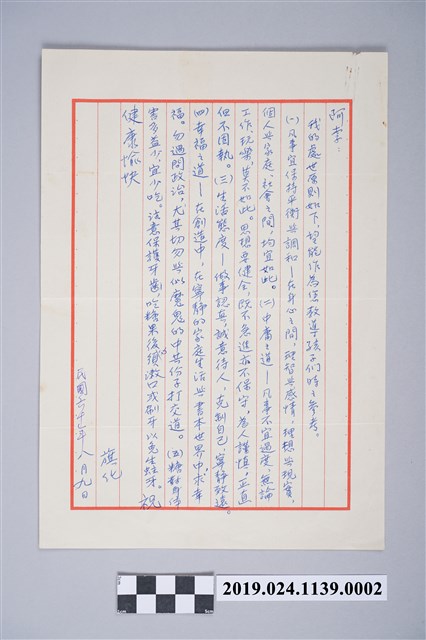 阿李：
我的處世原則如下，望能作為您教導孩子們時之參考。
(一)凡事宜保持平衡與調和—在身心之間，理智與感情，理想與現實，
個人與家庭、社會之間，均宜如此。(二)中庸之道—凡事不宜過度，無論
工作、玩樂，莫不如此。思想要健全，既不急進亦不保守，為人謹慎，正直
但不固執。(三)生活態度—做事認真，誠意待人，克制自己，寧靜致遠。
(四)幸福之道—在創造中，在寧靜的家庭生活與書本世界中，求幸
福。勿過問政治，尤其切勿與似魔鬼的中共份子打交道。(五)糖對身体
害多益少，宜少吃。注意保護牙齒，吃糖果後總漱口或刷牙以免生蛀牙。祝
健康愉快
旗化
民國六十七年八月九日
2019.024.1139.0002